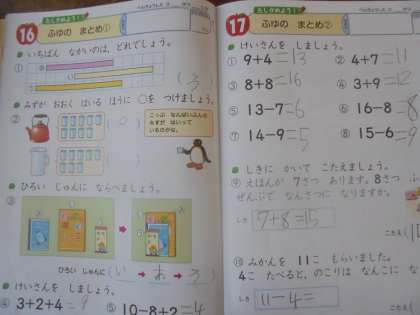 たしかめよう!
16 ふゆの まとめ①
いちばん ながいのは、どれでしょう。
①
みずが おおく はいる ほうに ○を つけましょう。
②
こっぷ なんばいぶんの
みずが はいって
いるのかな。
ひろい じゅんに ならべましょう。
③
ひろい じゅんに
けいさんを しましょう。
④ 3+2+4=9
⑤ 10-8+2=4
たしかめよう!
17 ふゆの まとめ②
けいさんを しましょう。
① 9+4=13
② 4+7=11
③ 8+8=16
④ 3+9=12
⑤ 13-7=6
⑥ 16-8=8
⑦ 14-9=5
⑧ 15-6=9
しきに かいて こたえましょう。
⑨ えほんが 7さつ あります。8さつ
ぜんぶで なんさつに なりますか。
しき 7+8=15
こたえ
⑩ みかんを 11こ もらいました。
4こ たべると、のこりは なんこに
しき 11-4=
こたえ